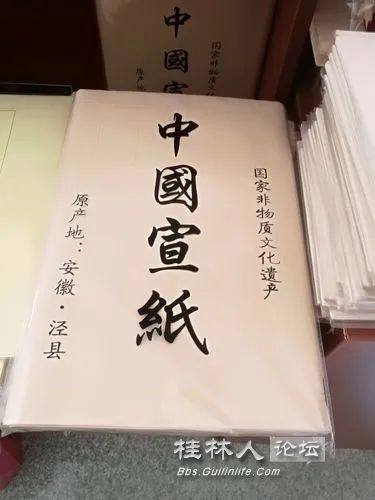 国家非物质文化遗产
中國宣紙
原产地：安徽·泾县
国家非物质文化
中國宣
原产地
桂林人论坛
Bbs.Guilinlife.Com